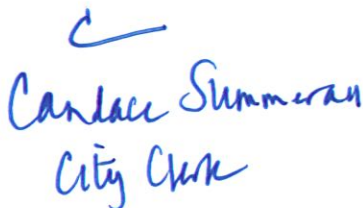 Candace Summerau
City Clerk